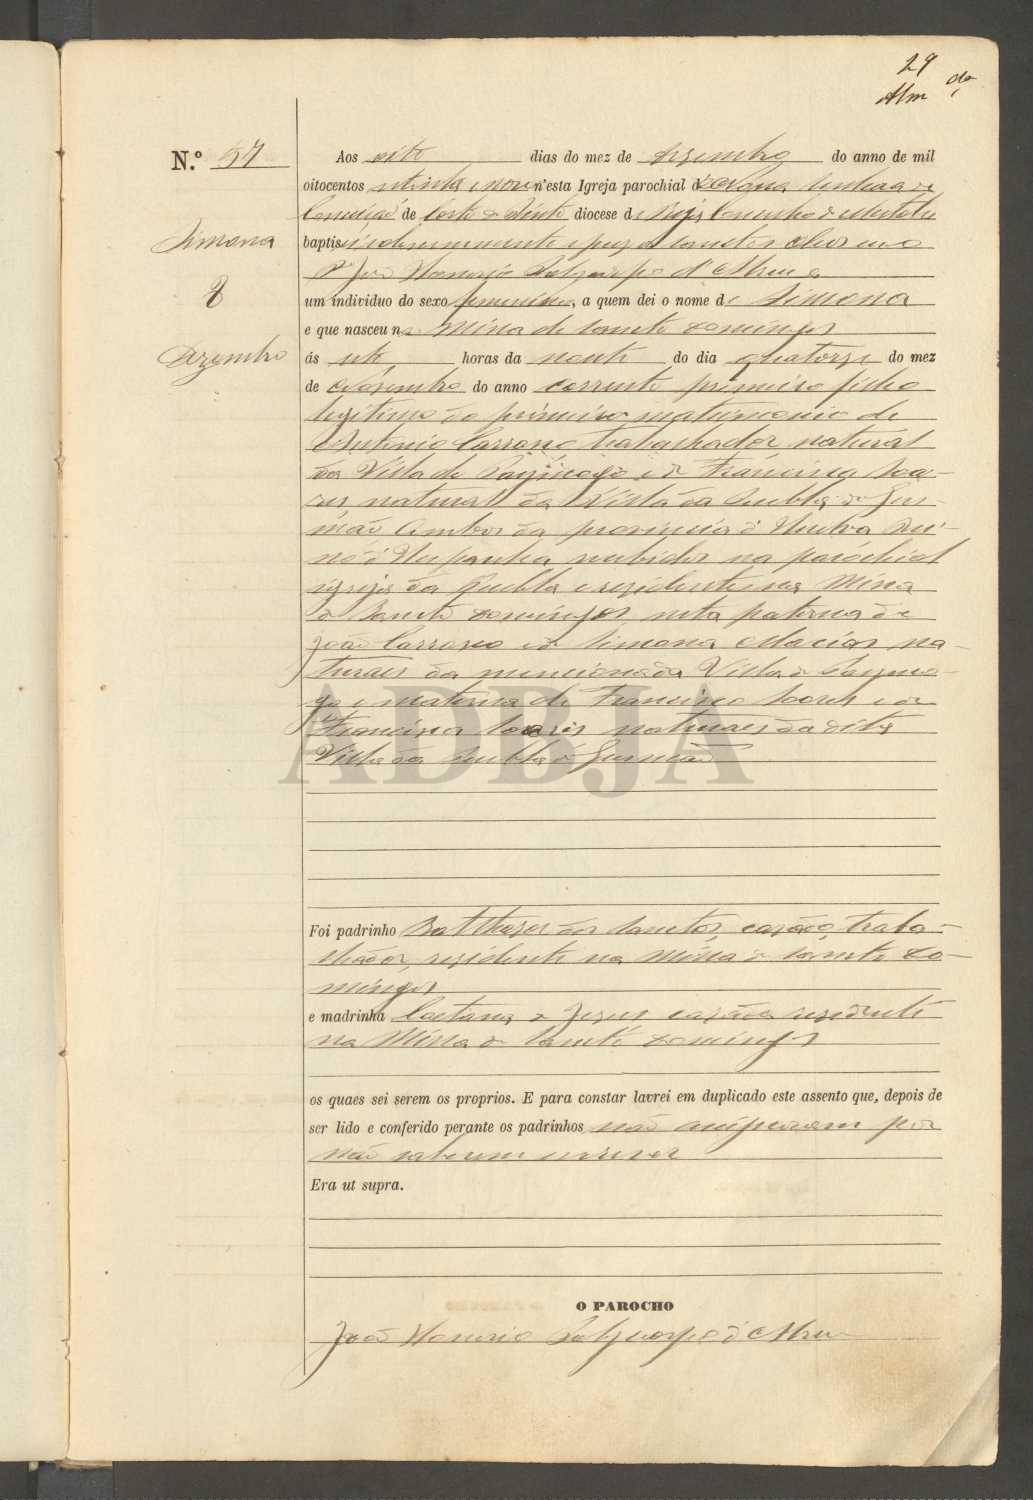 29
N.º 57
Simona
8
Dezembro
Aos oito dias do mez de Dezembro do anno de mil
oitocentos setenta e nove n'esta Igreja parochial de Nossa Senhora da
Conceição de Corte do Pinto diocese de Beja Concelho de Mertola
baptisei solemnemente e puz os sanctos oleos
João Honorio d'Abreu
um individuo do sexo femenino, a quem dei o nome de Simona
e que nasceu na Mina de Sancto Domingos
ás sete horas da noute do dia quatorze do mez
de Novembro do anno corrente primeiro filho
legitimo do primeiro matrimonio de
Antonio Carrasco trabalhador natural
da Villa de e de Francisca Soa-
res natural da Villa da Puebla de Gus-
mão Ambos da provincia d' Huelva Rei-
no d' Hespanha recebidos na parochial
igreja da Puebla e residentes na Mina
de Sancto Domingos, neta paterna de
João Carrasco e de Simona Macias na-
turaes da mencionada Villa de
e materna de Francisco Soares e de
Francisca Soares naturaes da dita
Villa da Puebla de Gusmão
Foi padrinho Balthazar dos Sanctos, cazado, traba-
lhador, residente na Mina de Sancto Do-
mingos
e madrinha Caetana de Jezus cazada residente
na Mina de Sancto Domingos
os quaes sei serem os proprios. E para constar lavrei em duplicado este assento que, depois de
ser lido e conferido perante os padrinhos não assignaram por
não saberem escrever
Era ut supra.
O PAROCHO
João Honorio d'Abreu
ADBJA